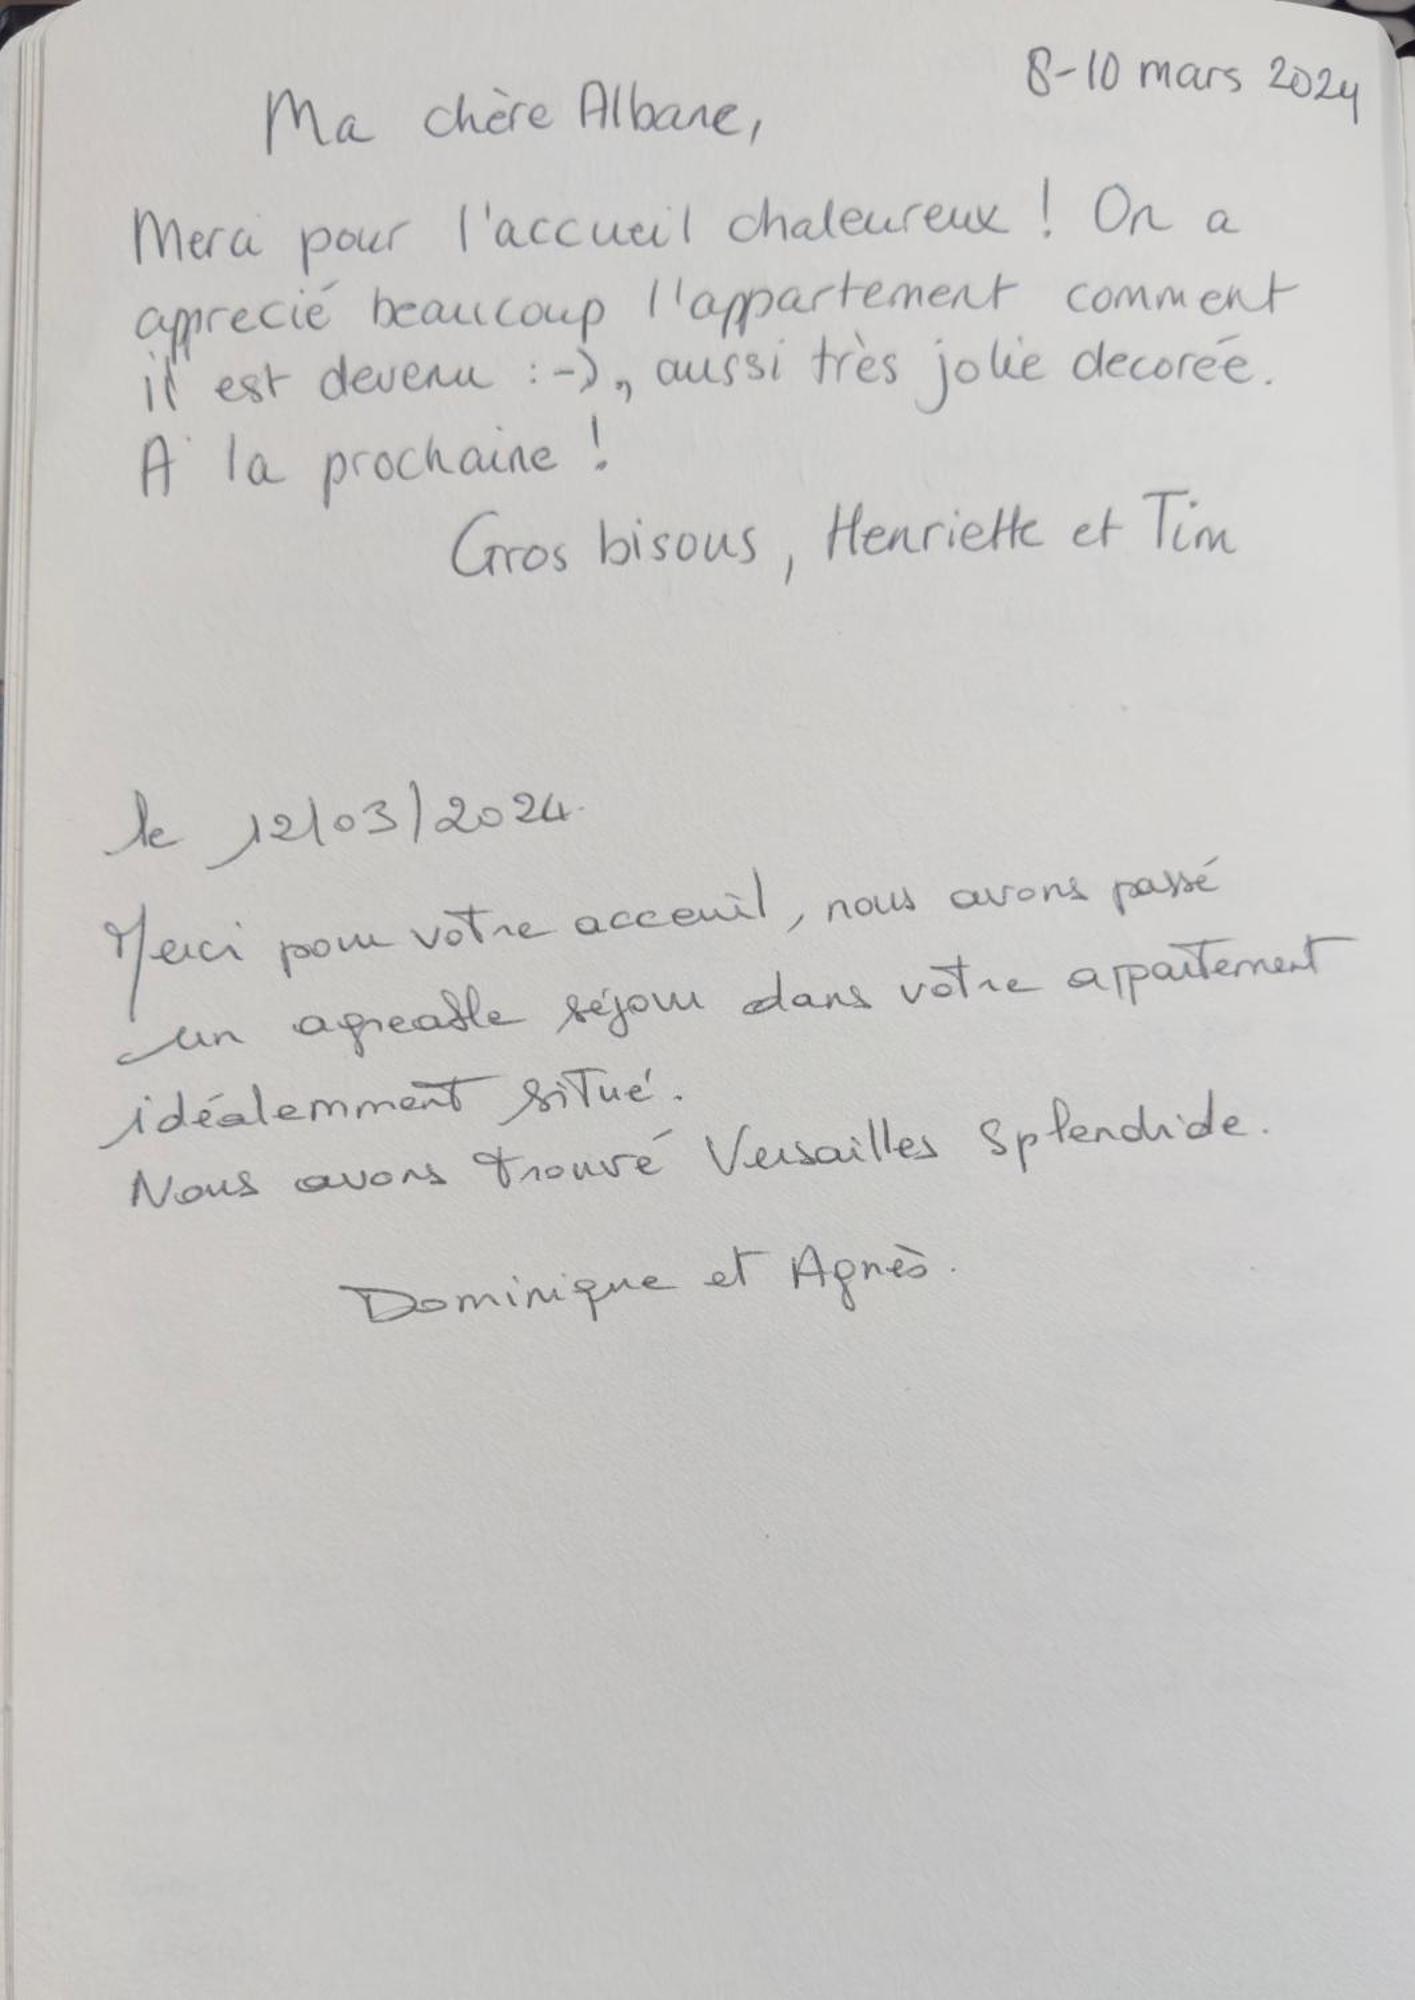 8-10 mars 2024
Ma chère Albane,
Merci pour l'accueil chaleureux ! On a
apprecié beaucoup l'appartement comment
il est devenu :-), aussi très jolie decorée.
A la prochaine !
Gros bisous, Henriette et Tim
le 12/03/2024.
Merci pour votre acceuil, nous avons passé
un agreable séjour dans votre appartement
idéalemment situé.
Nous avons trouvé Versailles Splendide.
Dominique et Agnès.